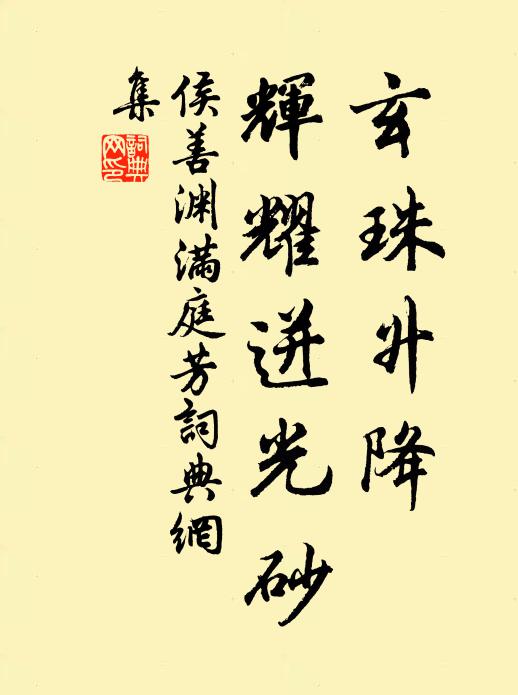 玄珠升降
輝耀迸光砂
侯善渊满庭芳詞典網
集
詞典網印